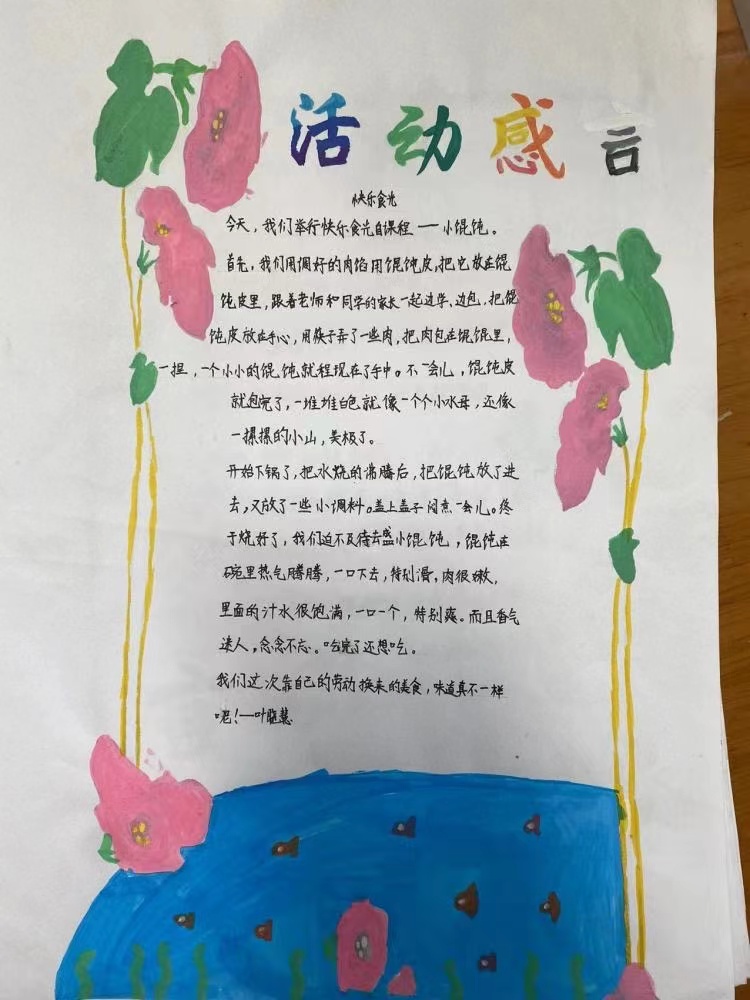 活动感言
快乐食光
今天，我们举行快乐食光自课程——小馄饨。
首先，我们用调好的肉馅用馄饨皮，把它放在馄
饨皮里，跟着老师和同学的家长一起边学、边包，把馄
饨皮放在手心，用筷子弄了一些肉，把肉包在馄馄里，
一捏，一个小小的馄饨就程现在了手中。不一会儿，馄饨皮
就包完了，一堆堆白色就像一个个小水母，还像
一摞摞的小山，美极了。
开始下锅了，把水烧的沸腾后，把馄饨放了进
去，又放了一些小调料。盖上盖子闷煮一会儿。终
于烧好了，我们迫不及待去盛小馄饨，馄饨在
碗里热气腾腾，一口下去，特别滑，肉很嫩，
里面的汁水很饱满，一口一个，特别爽。而且香气
迷人，念念不忘。吃完了还想吃。
我们这次靠自己的劳动换来的美食，味道真不一样
呢！——叶晓慧